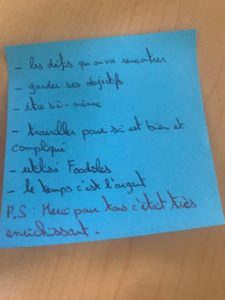 - les défis qu'on va rencontrer
- garder ses objectifs
- être soi-même
- travailler pour soi est bien et
compliqué
- utilisé
- le temps c'est l'argent
P.S : Merci pour tous c'était très
enrichissant.